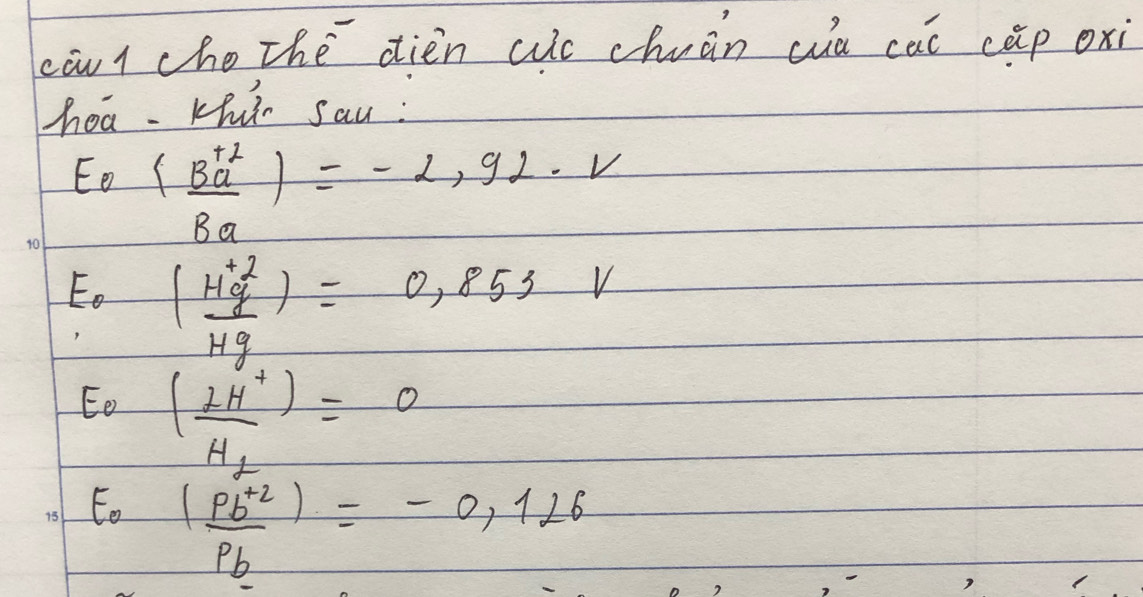 câu 1 cho thế điện cực chuẩn của các cặp oxi
hóa - khử sau :
E₀ ( Ba⁺² / Ba ) = - 2,92. V
10
E₀ ( Hg⁺² / Hg ) = 0,853 V
E₀ ( 2H⁺ / H₂ ) = 0
15
E₀ ( Pb⁺² / Pb ) = - 0,126